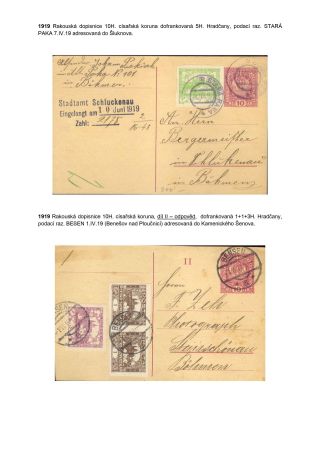 1919 Rakouská dopisnice 10H. císařská koruna dofrankovaná 5H. Hradčany, podací raz. STARÁ
PAKA 7.IV.19 adresovaná do Šluknova.
Böhmen
Stadtamt Schluckenau
Eingelangt am 10 Juni 1919
Zahl:
An Herrn
Bergermeister
in Schluckenau
in Böhmen
10
1919 Rakouská dopisnice 10H. císařská koruna, díl II – odpověď, dofrankovaná 1+1+3H. Hradčany,
podací raz. BESEN 1.IV.19 (Benešov nad Ploučnicí) adresovaná do Kamenického Šenova.
II
BENSEN
F. Zeh
Photograph
Steinschönau
Böhmen
BENSEN